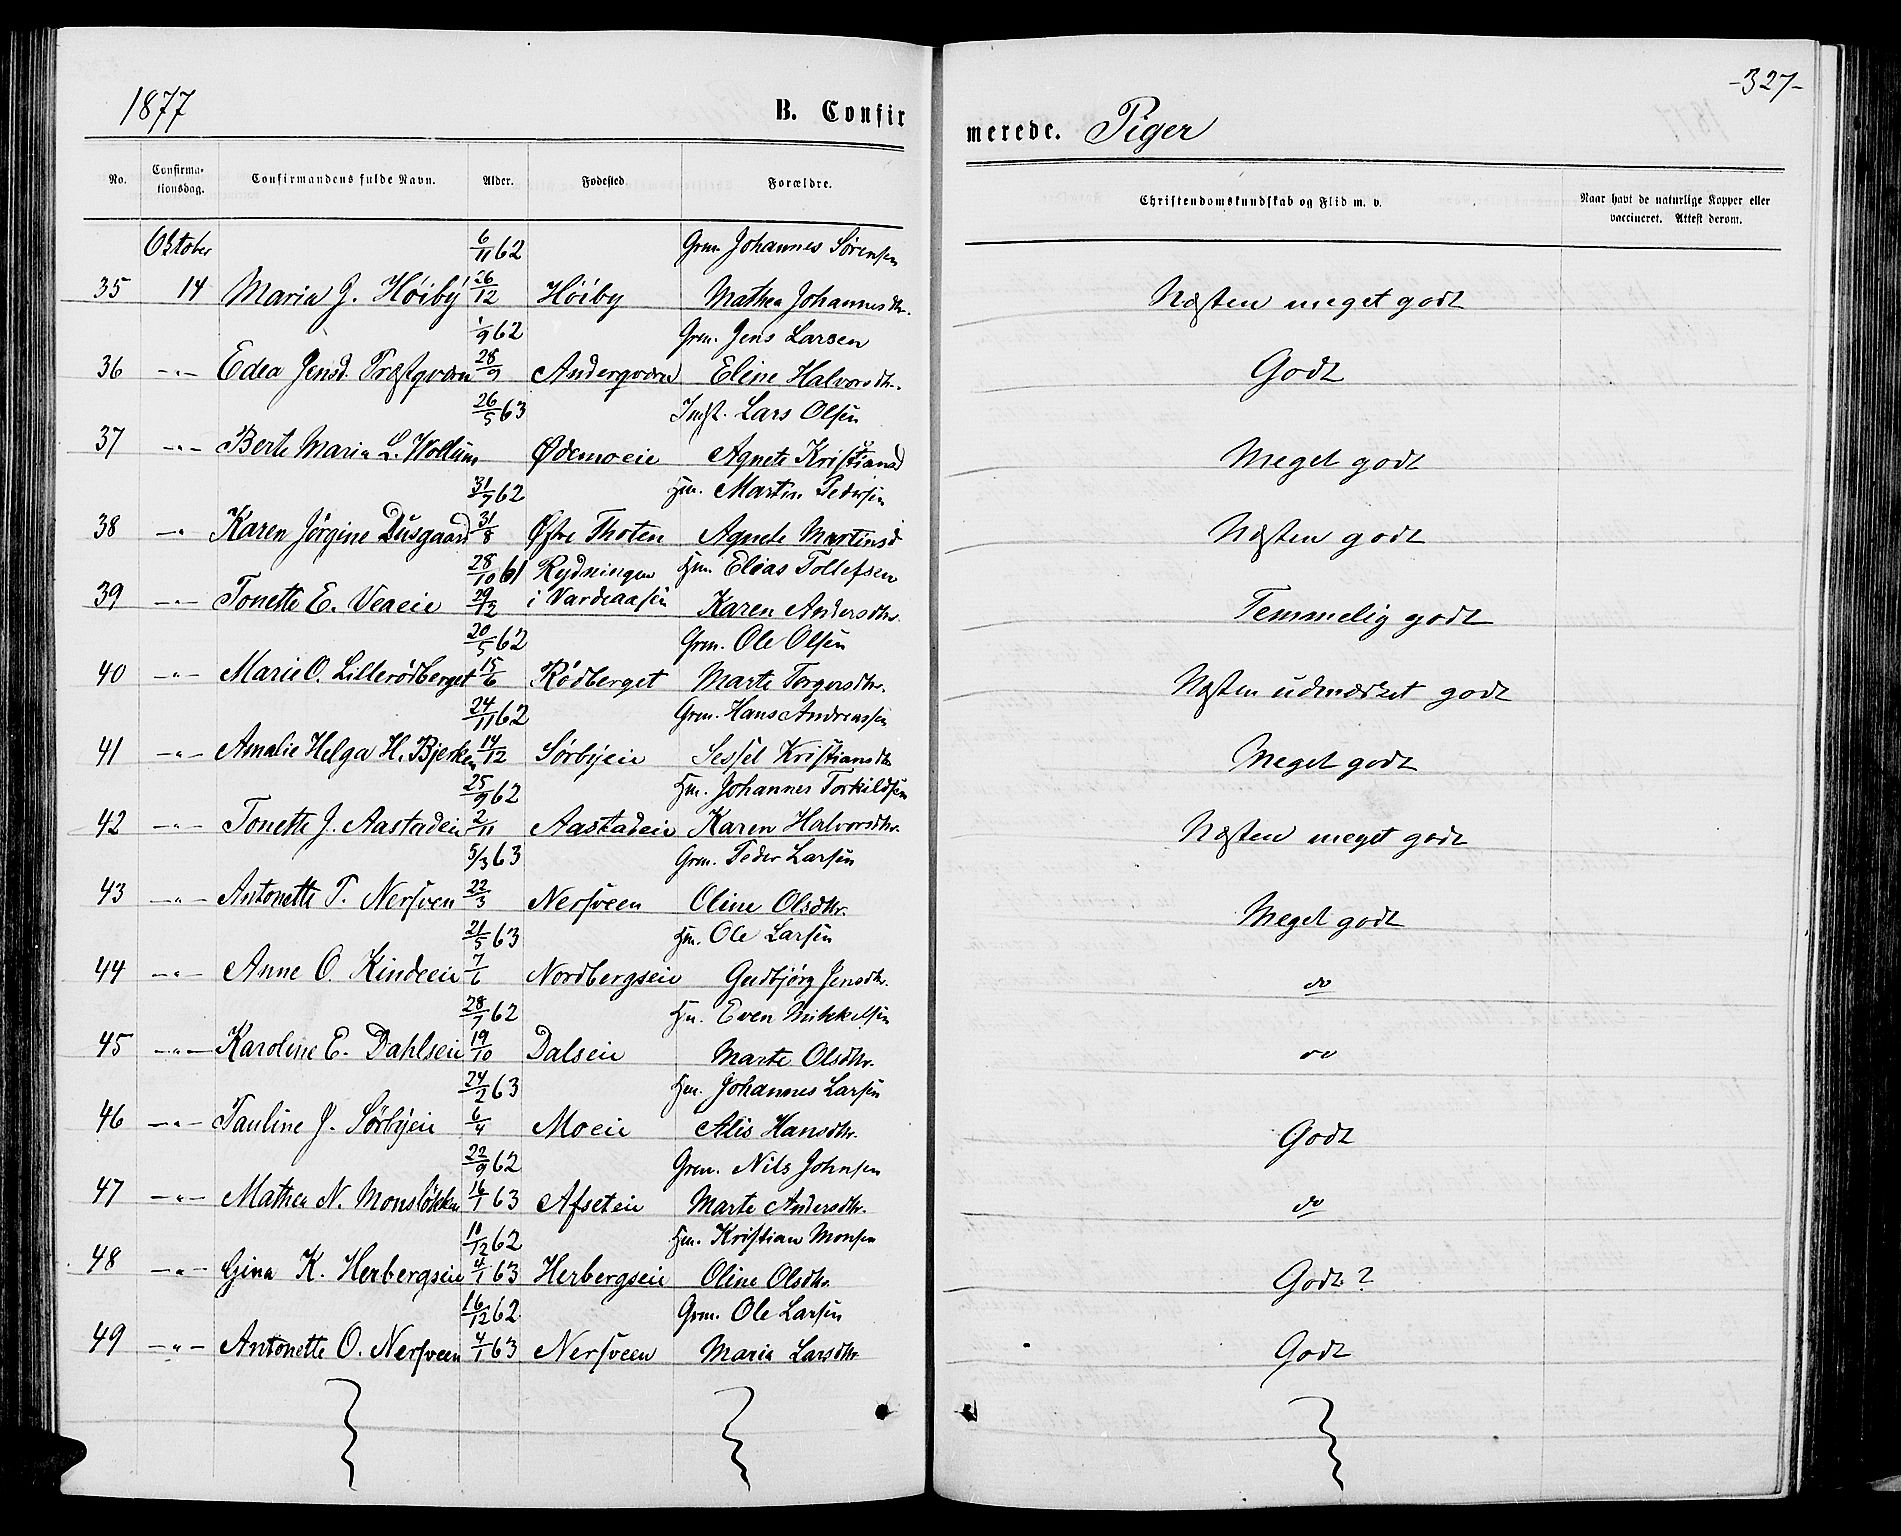 1877
B. Confir
merede. Piger
-327-
No. Confirma-tionsdag. Confirmandens fulde Navn. Alder. Fødested Forældre. Christendomskundskab og Flid m. v. Naar havt de naturlige Kopper eller vaccineret. Attest derom.
Oktober 6/11 62 Grm. Johannes Sørensen
35 14 Maria J. Höiby 26/12 Höiby Mathea Johannesdtr. Næsten meget godt
1/9 62 Grm. Jens Larsen
36 -"- Edea Jensd. Præstqværn 28/9 Anderqværn Eline Halvorsdtr. Godt
26/5 63 Indst. Lars Olsen
37 -"- Berte Maria L. Wollum Ødemoeie Agnete Kristiansd Meget godt
31/7 62 Hm. Martin Pedersen
38 -"- Karen Jörgine Dusgaard 31/8 Østre Thoten Agnete Martinsd Næsten godt
28/10 61 Rydningen Hm. Elias Tollefsen
39 -"- Tonette E. Veaeie 29/12 i Vardeaasen Karen Andersdtr. Temmelig godt
20/5 62 Grm. Ole Olsen
40 -"- Marie O. Lillerödberget 15/6 Rödberget Marte Torgersdtr. Næsten udmærket godt
24/11 62 Grm. Hans Andreassen
41 -"- Amalie Helga H. Bjerken 14/12 Sörbyeie Sessel Kristiansdtr Meget godt
25/9 62 Hm. Johannes Torkildsen
42 -"- Tonette J. Aastadeie 2/11 Aastadeie Karen Halvorsdtr. Næsten meget godt
5/3 63 Grm. Peder Larsen
43 -"- Antonette P. Nersveen 22/3 Nersveen Oline Olsdtr. Meget godt
21/5 63 Hm. Ole Larsen
44 -"- Anne O. Kindeeie 7/6 Nordbergseie Gudbjörg Jensdtr. do
28/7 62 Hm. Even Mikkelsen
45 -"- Karoline E. Dahlseie 19/10 Dalseie Marte Olsdtr. do
24/2 63 Hm. Johannes Larsen
46 -"- Pauline J. Sörbyeie 6/4 Moeie Alis Hansdtr. Godt
22/9 62 Grm. Nils Johnsen
47 -"- Mathea N. Monslökken 16/1 63 Afseteie Marte Andersdtr. do
10/12 62 Hm. Kristian Monsen
48 -"- Gina K. Herbergseie 4/1 63 Herbergseie Oline Olsdtr. Godt?
16/12 62 Grm. Ole Larsen
49 -"- Antonette O. Nersveen 4/1 63 Nersveen Maria Larsdtr Godt